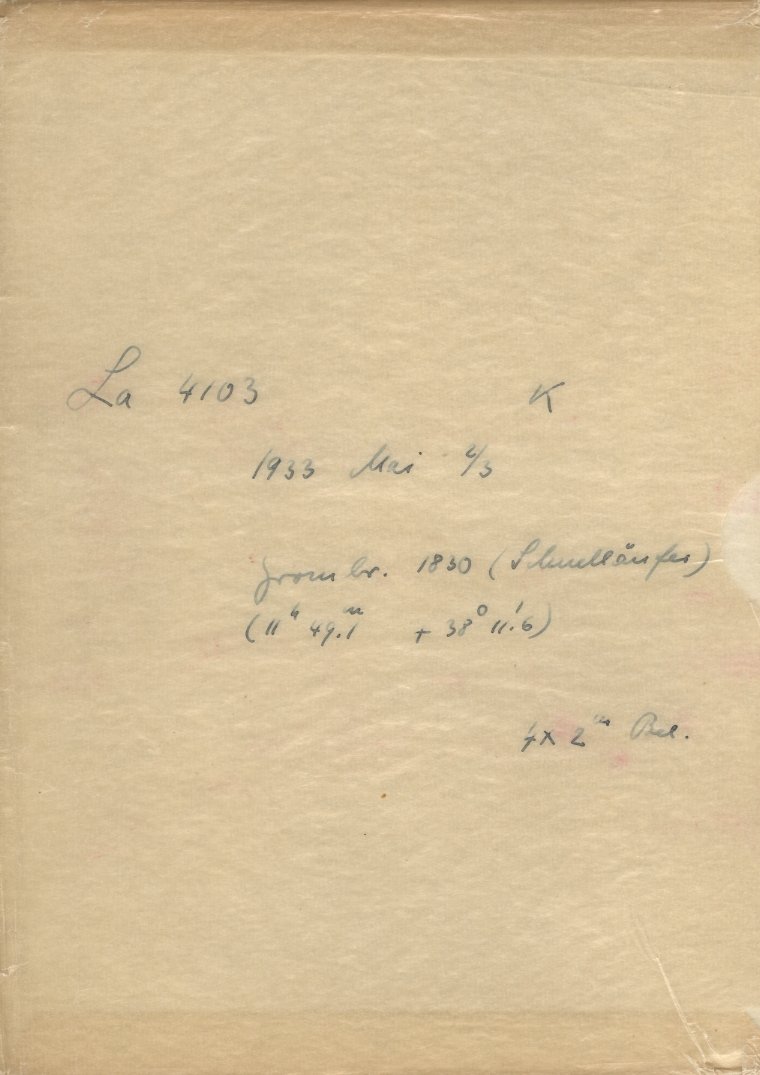 La 4103 K
1933 Mai 2/3
Groombr. 1830 (Schnelläufer)
(11ʰ 49.1ᵐ + 38° 11.'6)
4x 2ᵐ Bel.